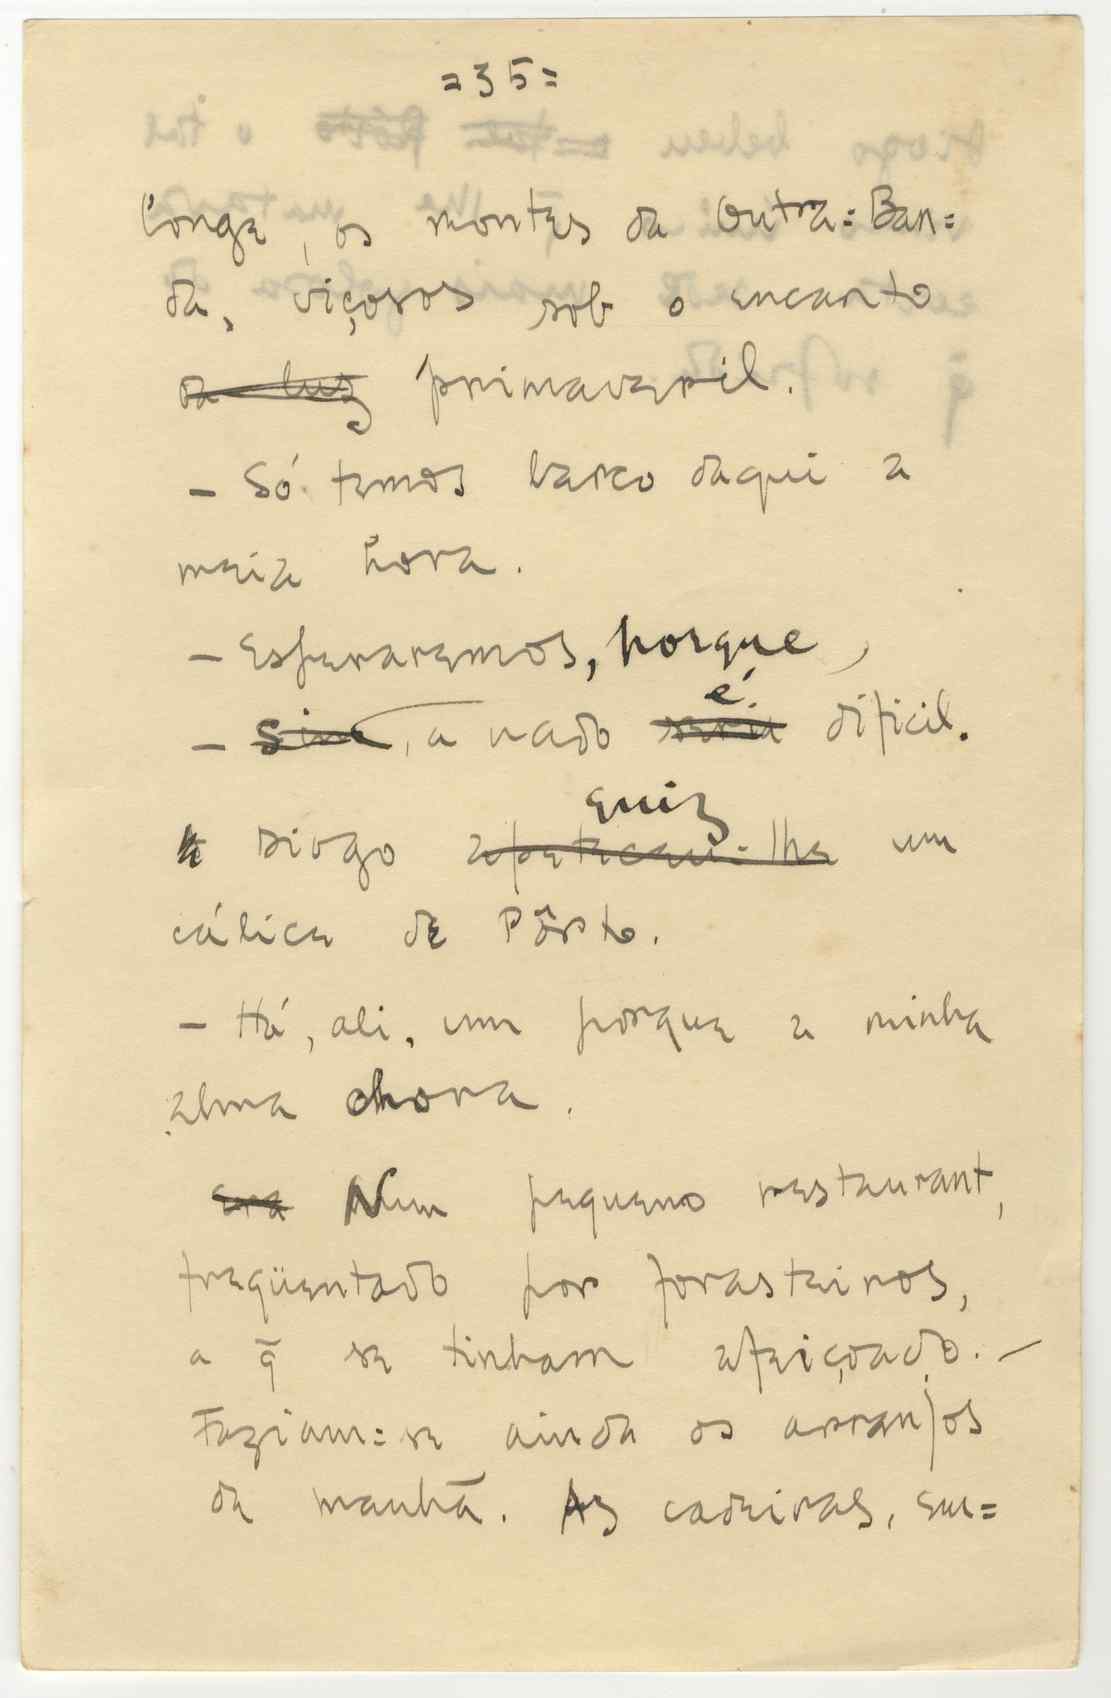 =35=
longe, os montes da Outra=Ban=
da, viçosos sob o encanto
da luz primaveril.
– Só temos barco daqui a
meia hora.
– Esperaremos, porque
– Sim, a nado seria é difícil.
Diogo apeteceu-lhe quiz um
cálice de Pôrto.
– Há, ali, um porque a minha
alma chora.
era Num pequeno restaurant,
freqüentado por forasteiros,
a q̄ se tinham afeiçoado. –
Faziam=se ainda os arranjos
da manhã. As cadeiras, em=